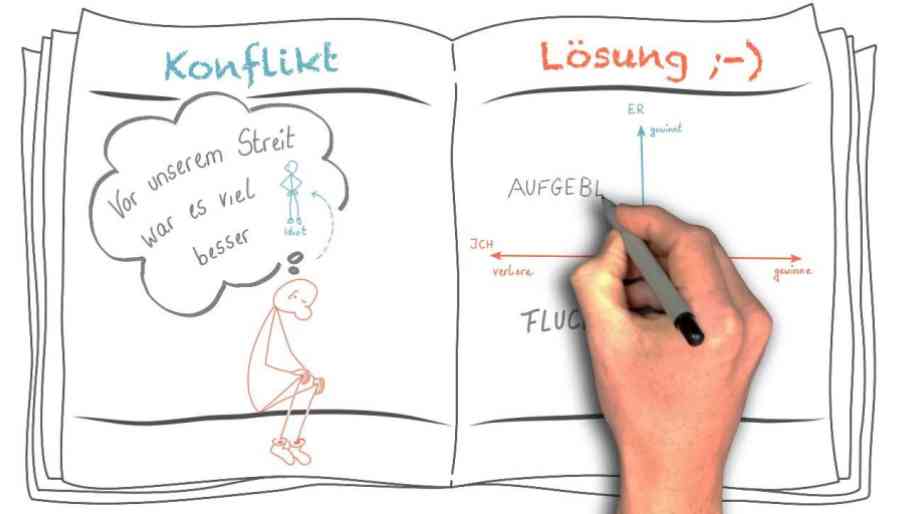 Konflikt
Vor unserem Streit
war es viel
besser
Idiot
Lösung ;-)
ER
gewinnt
AUFGEBL
JCH
verliere
gewinne
FLUC